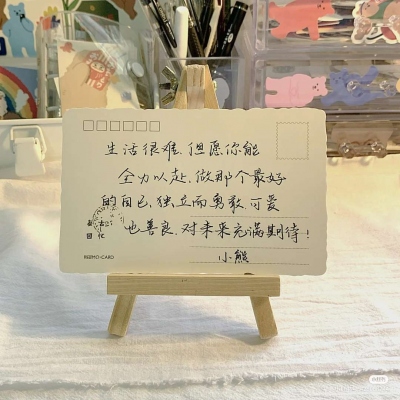 生活很难,但愿你能
全力以赴,做那个最好
的自己,独立而勇敢可爱
也善良,对未来充满期待!
小熊